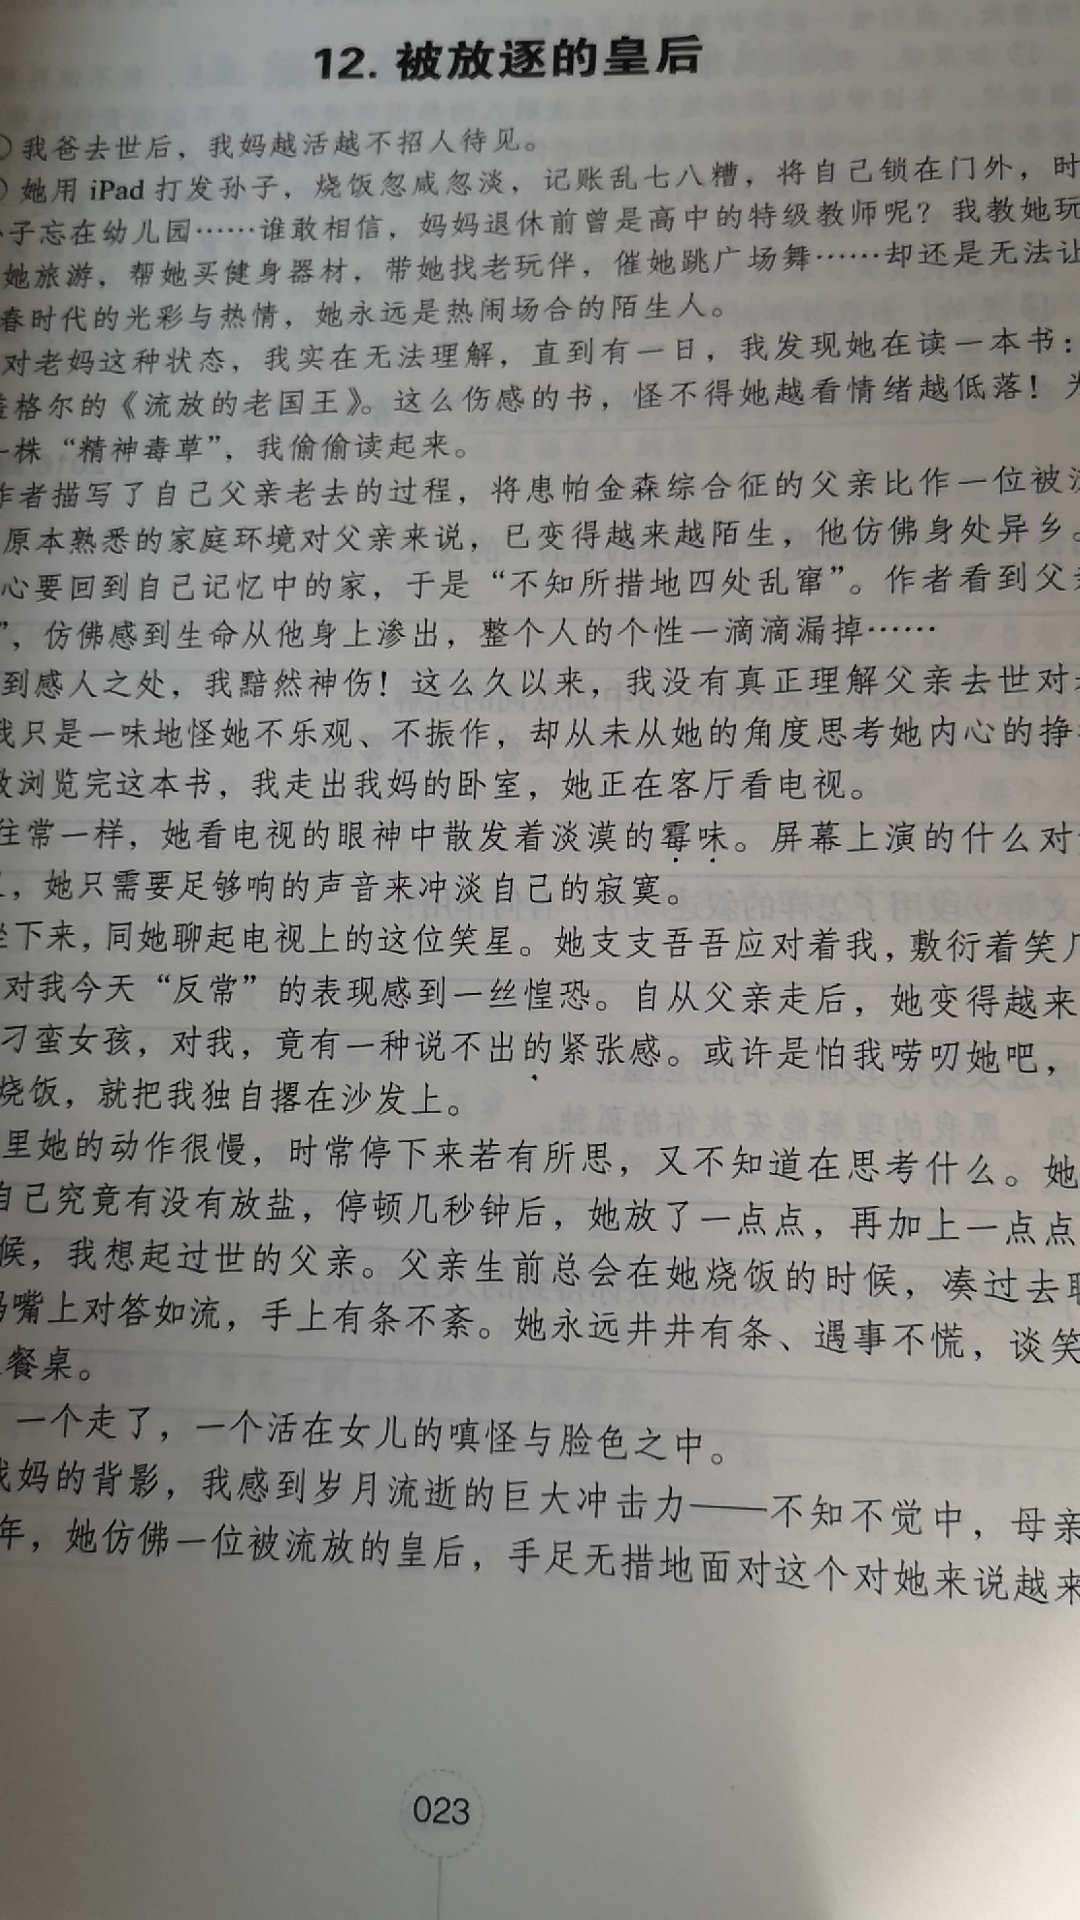 12. 被放逐的皇后
我爸去世后，我妈越活越不招人待见。
她用 iPad 打发孙子，烧饭忽咸忽淡，记账乱七八糟，将自己锁在门外，时
子忘在幼儿园……谁敢相信，妈妈退休前曾是高中的特级教师呢？我教她玩
她旅游，帮她买健身器材，带她找老玩伴，催她跳广场舞……却还是无法让
春时代的光彩与热情，她永远是热闹场合的陌生人。
对老妈这种状态，我实在无法理解，直到有一日，我发现她在读一本书：
格尔的《流放的老国王》。这么伤感的书，怪不得她越看情绪越低落！
一株“精神毒草”，我偷偷读起来。
作者描写了自己父亲老去的过程，将患帕金森综合征的父亲比作一位被流
原本熟悉的家庭环境对父亲来说，已变得越来越陌生，他仿佛身处异乡。
心要回到自己记忆中的家，于是“不知所措地四处乱窜”。作者看到父亲
”，仿佛感到生命从他身上渗出，整个人的个性一滴滴漏掉……
到感人之处，我黯然神伤！这么久以来，我没有真正理解父亲去世对
我只是一味地怪她不乐观、不振作，却从未从她的角度思考她内心的挣
浏览完这本书，我走出我妈的卧室，她正在客厅看电视。
往常一样，她看电视的眼神中散发着淡漠的霉味。屏幕上演的什么对
，她只需要足够响的声音来冲淡自己的寂寞。
坐下来，同她聊起电视上的这位笑星。她支支吾吾应对着我，敷衍着笑几
对我今天“反常”的表现感到一丝惶恐。自从父亲走后，她变得越来
刁蛮女孩，对我，竟有一种说不出的紧张感。或许是怕我唠叨她吧，
烧饭，就把我独自撂在沙发上。
里她的动作很慢，时常停下来若有所思，又不知道在思考什么。她
自己究竟有没有放盐，停顿几秒钟后，她放了一点点，再加上一点点
候，我想起过世的父亲。父亲生前总会在她烧饭的时候，凑过去
妈嘴上对答如流，手上有条不紊。她永远井井有条、遇事不慌，谈笑
餐桌。
一个走了，一个活在女儿的嗔怪与脸色之中。
我妈的背影，我感到岁月流逝的巨大冲击力——不知不觉中，母亲
年，她仿佛一位被流放的皇后，手足无措地面对这个对她来说越来
023